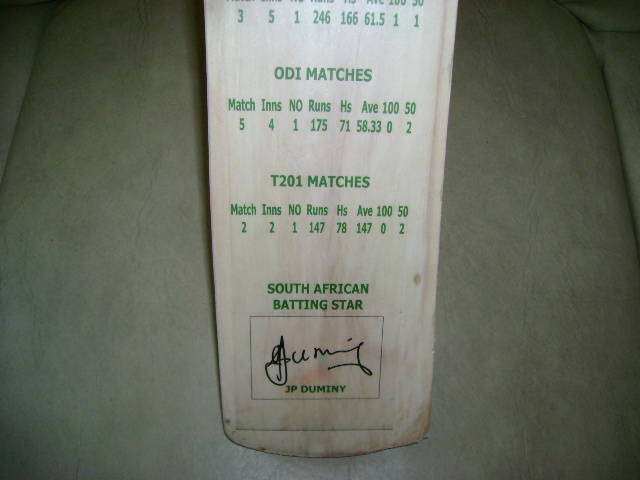 Match Inns NO Runs Hs Ave 100 50
3 5 1 246 166 61.5 1 1
ODI MATCHES
Match Inns NO Runs Hs Ave 100 50
5 4 1 175 71 58.33 0 2
T201 MATCHES
Match Inns NO Runs Hs Ave 100 50
2 2 1 147 78 147 0 2
SOUTH AFRICAN
BATTING STAR
JP DUMINY